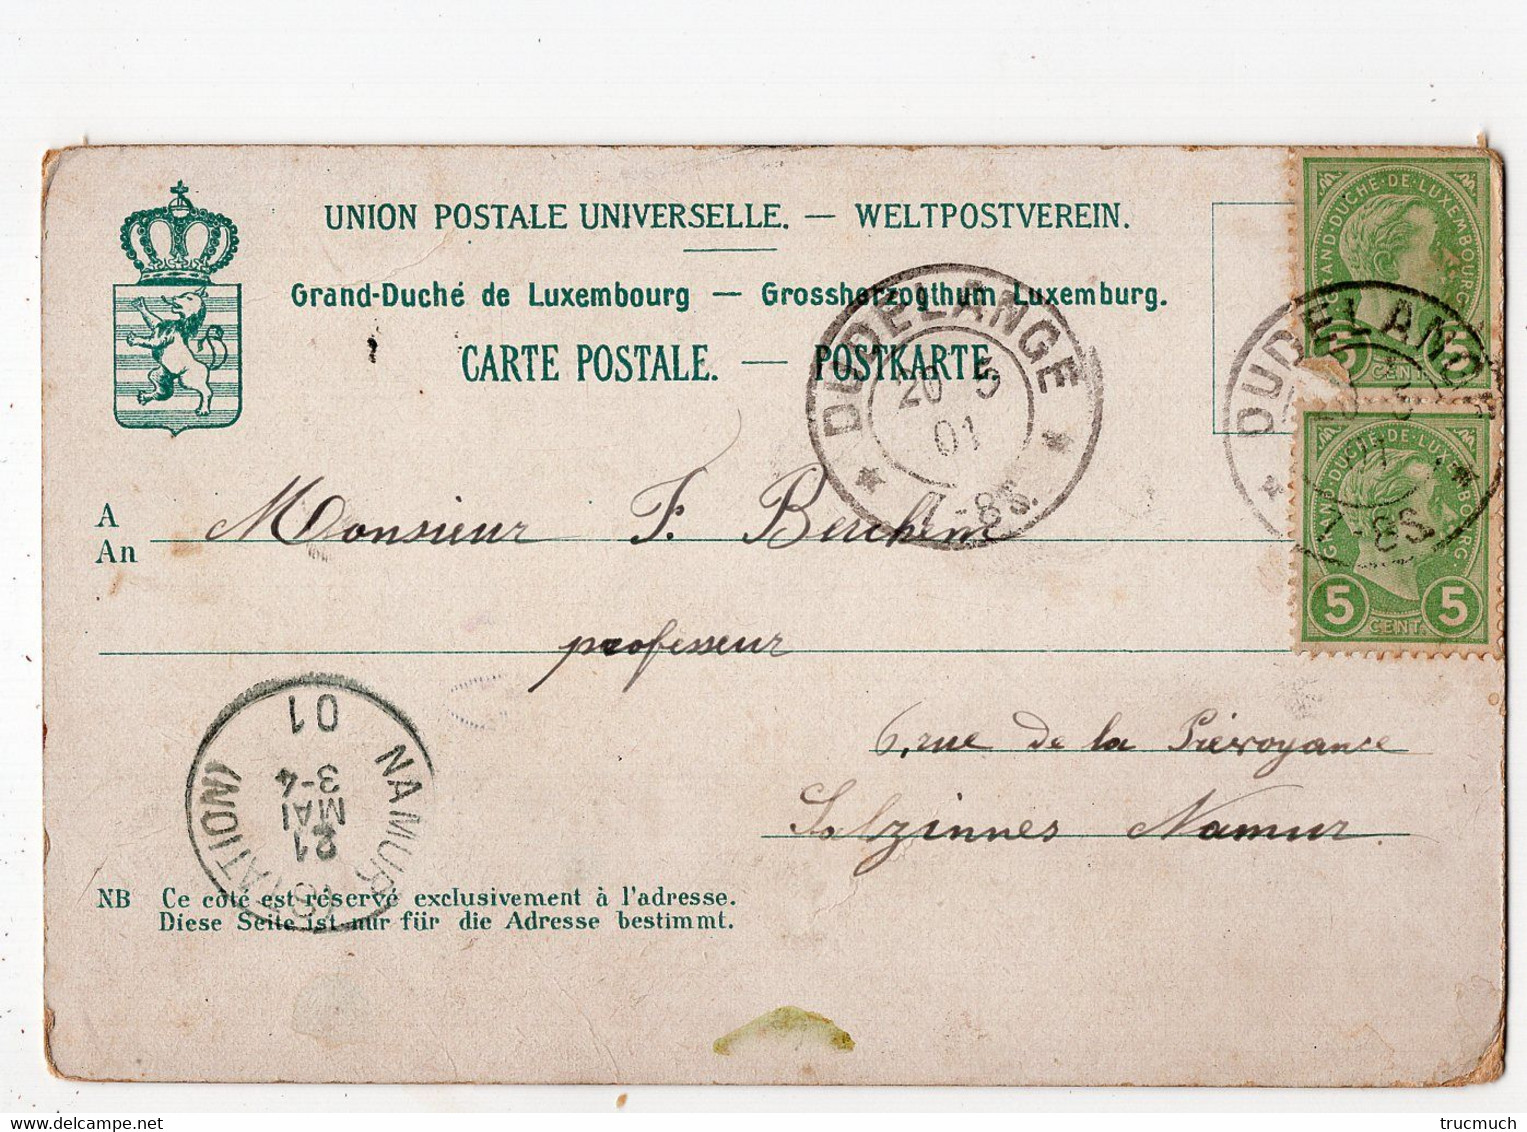 UNION POSTALE UNIVERSELLE. — WELTPOSTVEREIN.
Grand-Duché de Luxembourg — Grossherzogthum Luxemburg.
CARTE POSTALE. — POSTKARTE.
GRAND-DUCHÉ-DE-LUXEMBOURG
5 CENT. 5
DUDELANGE
20 5
01
7-8S.
DUDELANGE
7-8S.
GRAND-DUCHÉ-DE-LUXEMBOURG.
5 CENT. 5
A Monsieur F. Berchem
An
professeur
6, rue de la Prévoyance
Salzinnes Namur
NAMUR (STATION)
21
MAI
3-4
01
NB Ce côté est réservé exclusivement à l'adresse.
Diese Seite ist nur für die Adresse bestimmt.
delcampe.net
trucmuch